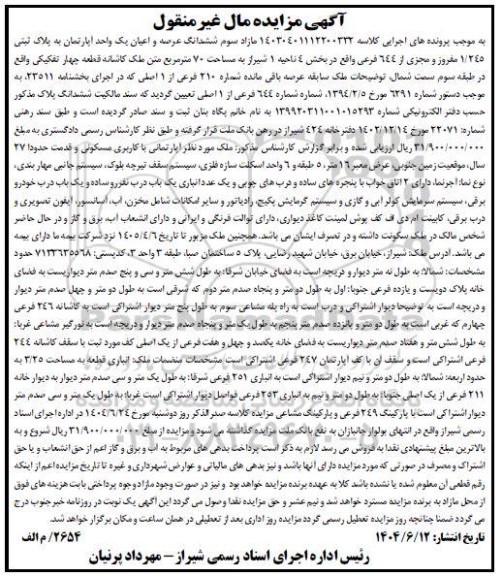 آگهی مزایده مال غیر منقول
به موجب پرونده های اجرایی کلاسه ۱۴۰۳۰۴۰۱۱۱۲۲۰۰۳۳۲ مازاد سوم ششدانگ عرصه و اعیان یک واحد آپارتمان به پلاک ثبتی
۱/۲۴۵ مفروز و مجزی از ۶۴۴ فرعی واقع در بخش ۴ ناحیه ۱ شیراز به مساحت ۷۰ مترمربع متن ملک کاشانه قطعه چهار تفکیکی واقع
در طبقه سوم سمت شمال، توضیحات ملک سابقه عرصه باقی مانده شماره ۲۱۰ فرعی از ۱ اصلی که در اجرای بخشنامه ۲۳۵۱۱، به
موجب دستور شماره ۶۲۹۱ مورخ ۱۳۹۴/۲/۵، شماره ۶۴۴ فرعی از ۱ اصلی تعیین گردید که سند مالکیت ششدانگ پلاک مذکور
حسب دفتر الکترونیکی شماره ۱۳۹۹۲۰۳۱۱۰۰۱۰۱۵۲۹۳ به نام خانم پگاه بنان ثبت و سند صادر گردیده است و طبق سند رهنی
شماره: ۲۲۰۷۱ مورخ ۱۴۰۲/۱۲/۱۴ دفترخانه ۴۲۴ شیراز در رهن بانک ملت قرار گرفته و طبق نظر کارشناس رسمی دادگستری به مبلغ
۳۱/۹۰۰/۰۰۰/۰۰۰ ریال ارزیابی شده و برابر گزارش کارشناس مذکور: ملک مورد نظر آپارتمانی با کاربری مسکونی و قدمت حدودا ۲۷
سال، موقعیت زمین جنوبی، عرض معبر ۱۶ متر، ۵ طبقه و ۶ واحد اسکلت سازه فلزی، سیستم سقف تیرچه بلوک، سیستم جانبی مهاربندی،
نوع نما: آجرنما، دارای ۲ اتاق خواب با پنجره های ساده و درب های چوبی و یک عدد انباری یک باب درب نفررو ساده و یک باب درب خودرو
برقی، سیستم سرمایش کولر آبی و گازی و سیستم گرمایش پکیج، رادیاتور و سایر امکانات شامل مخزن، آب، آسانسور، آیفون تصویری و
درب برقی، کابینت ام دی اف کف پوش لمینت کاغذ دیواری، دارای توالت فرنگی و ایرانی و دارای انشعاب آب، برق و گاز و در حال حاضر
شخص مالک در ملک سکونت داشته و در تصرف ایشان می باشد. همچنین ملک مزبور تا تاریخ ۱۴۰۵/۴/۶ نزد شرکت بیمه ما دارای بیمه
می باشد. آدرس ملک: شیراز، خیابان برق، خیابان شهید رضایی، پلاک ۵ ساختمان صبا، طبقه ۳ واحد ۳، کدپستی: ۷۱۳۴۶۳۵۵۶۸ حدود
مشخصات: شمالا: به طول نه متر دیوار و دریچه است به فضای خیابان شرقا: به طول شش متر و سی و پنج صدم متر دیواریست به فضای
خانه پلاک دویست و یازده فرعی جنوبا: اول به طول دو متر و پنجاه صدم متر دوم که شرقی است به طول دو متر و چهل صدم متر دیوار
و دریچه است به توضیحا دیوار اشتراکی و درب است به راه پله مشاعی سوم به طول پنج متر دیوار اشتراکی است به کاشانه ۲۴۶ فرعی
چهارم که غربی است به طول دو متر و پانزده صدم متر پنجم به طول یک متر و پنجاه صدم متر دیوار و دریچه است به نورگیر مشاعی غربا:
به طول شش متر و هفتاد صدم متر دیواریست به فضای خانه یکصد و چهل و هفت فرعی از یک اصلی کف مورد ثبت با سقف کاشانه ۲۴۴
فرعی اشتراکی است و سقف آن با کف آپارتمان ۲۴۷ فرعی اشتراکی است. مشخصات منضمات ملک: انباری قطعه به مساحت ۳/۲۵ به
حدود اربعه: شمالا: به طول دو متر و نیم دیوار اشتراکی است به انباری ۲۵۱ فرعی شرقا: به طول یک متر و سی صدم متر دیوار به دیوار خانه
۲۱۱ فرعی از یک اصلی جنوبا: به طول دو متر و نیم به انباری ۲۵۳ فرعی فواصل دیوار اشتراکی است غربا: به طول یک متر و سی صدم متر
دیوار اشتراکی است با پارکینگ ۲۴۹ فرعی و پارکینگ مشاعی مزایده کلاسه صدر الذکر روز دوشنبه مورخ ۱۴۰۴/۶/۲۴ در اداره اجرای اسناد
رسمی شیراز واقع در انتهای بولوار جانبازان به نفع بانک ملت مزایده گذاشته می شود و مزایده از مبلغ ۳۱/۹۰۰/۰۰۰/۰۰۰ ریال شروع و به
بالاترین مبلغ پیشنهادی نقدا به فروش می رسد لازم به ذکر است پرداخت بدهی های مربوط به آب و برق و گاز اعم از حق انشعاب و یا حق
اشتراک و مصرف در صورتی که مورد مزایده دارای آنها باشد و نیز بدهی های مالیاتی و عوارض شهرداری و غیره تا تاریخ مزایده اعم از اینکه
رقم قطعی آن معلوم شده یا نشده باشد کلا به عهده برنده مزایده خواهد بود و نیز در صورت وجود مازاد وجوه پرداختی بابت هزینه های فوق
از محل مازاد به برنده مزایده مسترد خواهد شد و نیم عشر و حق مزایده نقدا وصول می گردد این آگهی یک نوبت در روزنامه خبرجنوب درج
می گردد ضمنا چنانچه روز مزایده تعطیل رسمی گردد مزایده روز اداری بعد از تعطیلی در همان ساعت و مکان برگزار خواهد شد.
تاریخ انتشار: ۱۴۰۴/۶/۱۲ ۲۶۵۴/م الف
رئیس اداره اجرای اسناد رسمی شیراز – مهرداد پرنیان